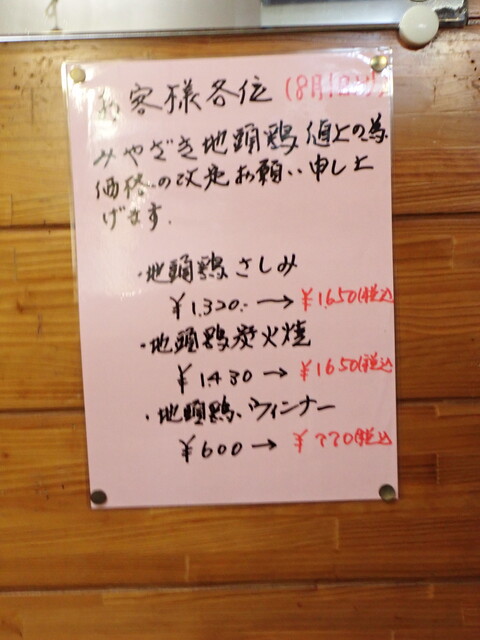 お客様各位 (8月1日より)
みやざき地頭鶏値上の為
価格の改定お願い申し上
げます.
・地頭鶏さしみ
¥1.320.-→¥1.650(税込
・地頭鶏炭火焼
¥1430→¥1650(税込
・地頭鶏ウィンナー
¥600→¥770(税込